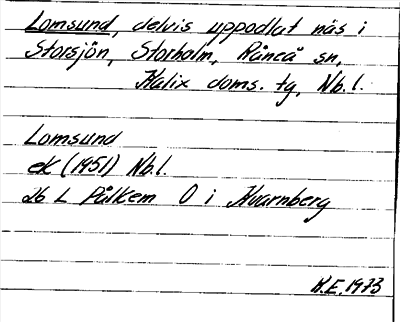 Lomsund, delvis uppodlat näs i
Storsjön, Storholm, Råneå sn,
Kalix doms. tg, Nb. l.
Lomsund
ek (1951) Nb.l.
26 L Pålkem O i Kvarnberg
K.E. 1973